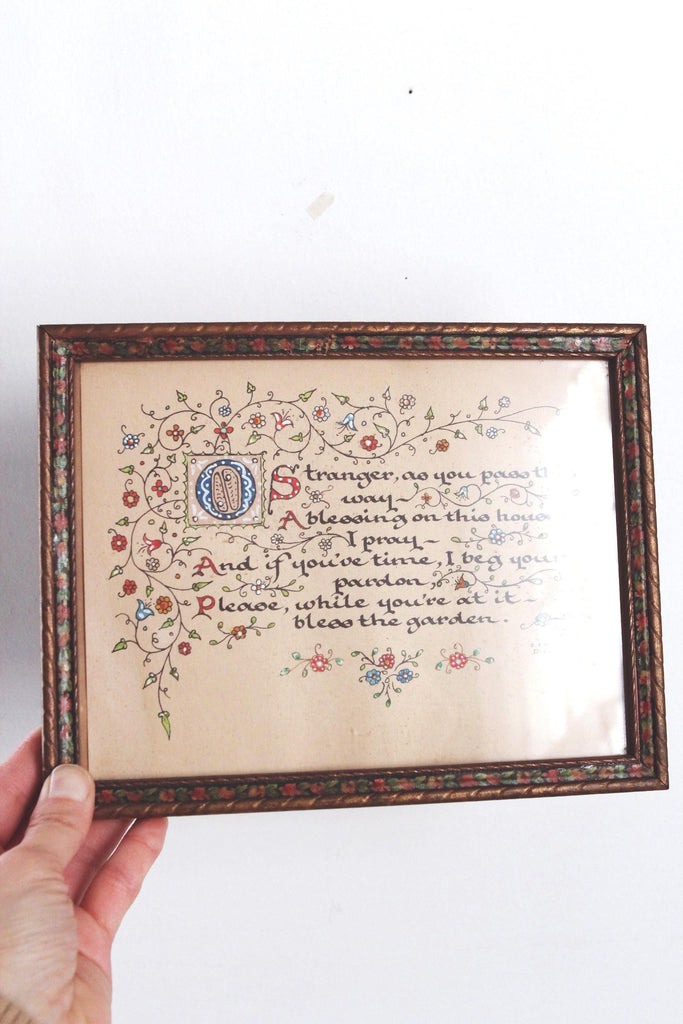 O Stranger, as you pass th
way~
A blessing on this hous
I pray~
And if you've time, I beg your
pardon,
Please, while you're at it~
bless the garden.